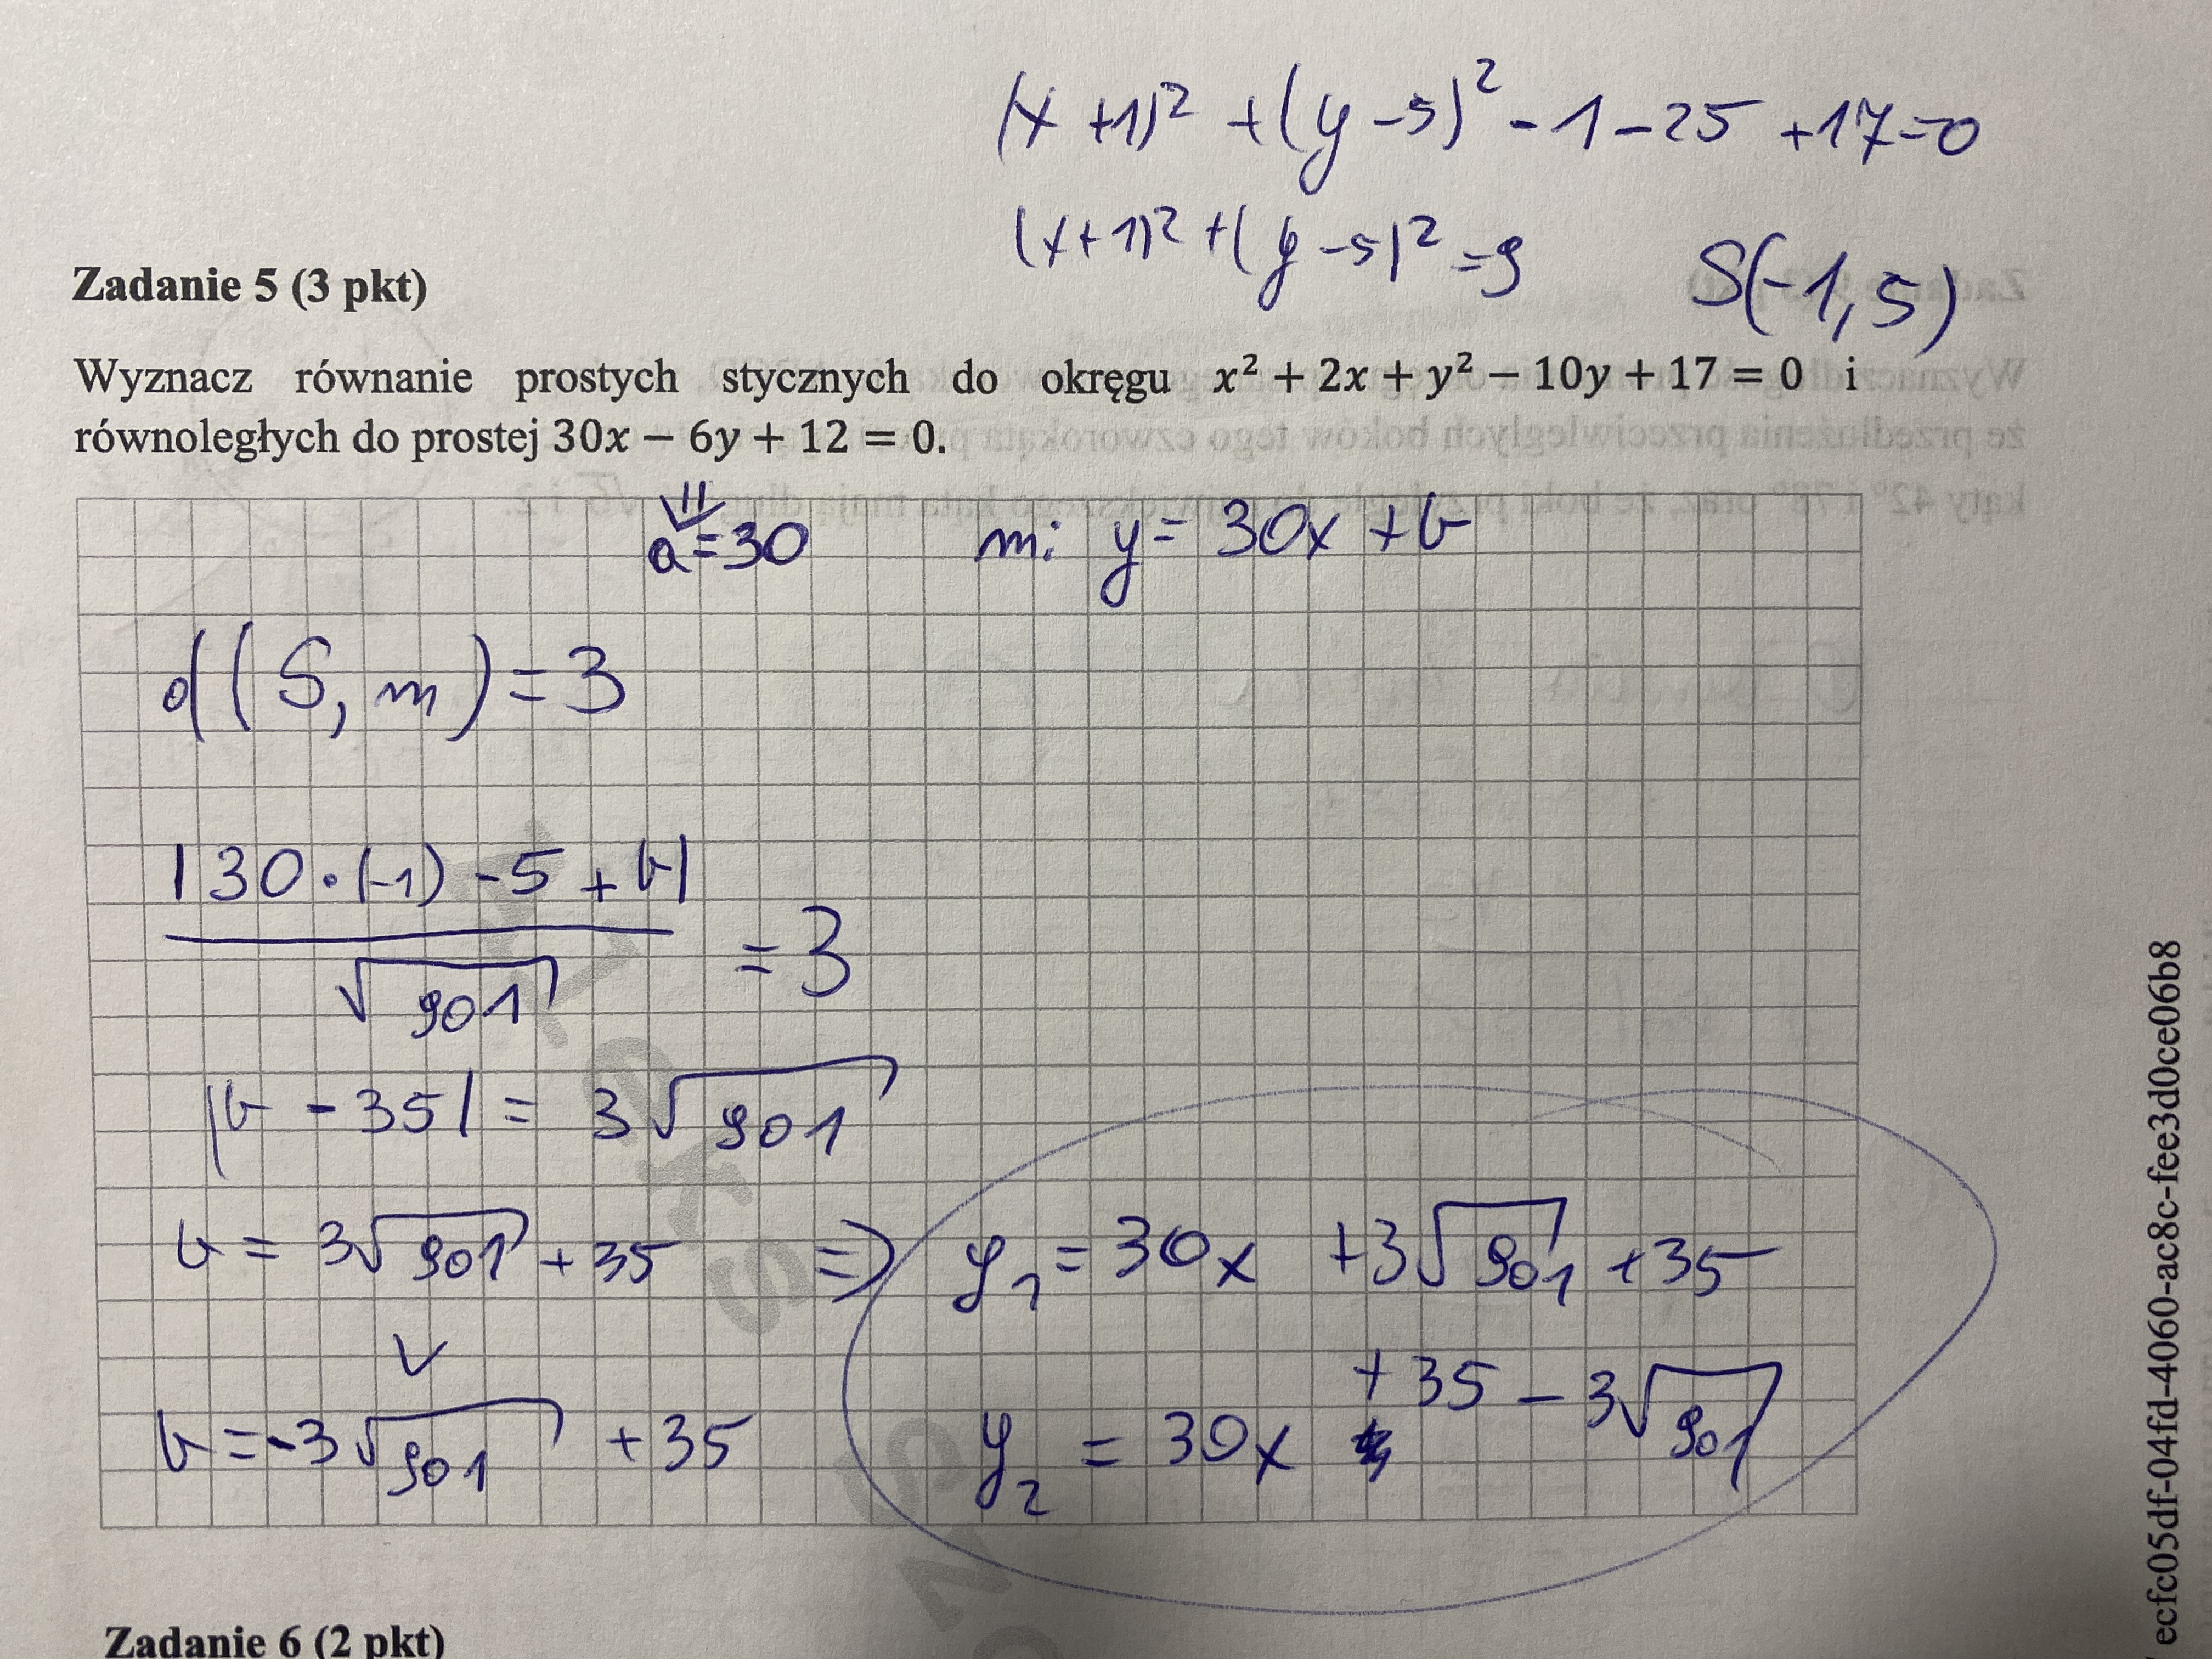 (x+1)² + (y-5)² - 1 - 25 + 17 = 0
(x+1)² + (y-5)² = 9 S(-1, 5)
Zadanie 5 (3 pkt)
Wyznacz równanie prostych stycznych do okręgu x² + 2x + y² − 10y + 17 = 0 i
równoległych do prostej 30x − 6y + 12 = 0.
a = 30 m: y = 30x + b
d(S, m) = 3
|30·(-1) - 5 + b| / √901 = 3
|b - 35| = 3√901
b = 3√901 + 35 ⇒ y₁ = 30x + 3√901 + 35
∨
b = -3√901 + 35 y₂ = 30x + 35 - 3√901
Zadanie 6 (2 pkt)
ecfc05df-04fd-4060-ac8c-fee3d0ce06b8